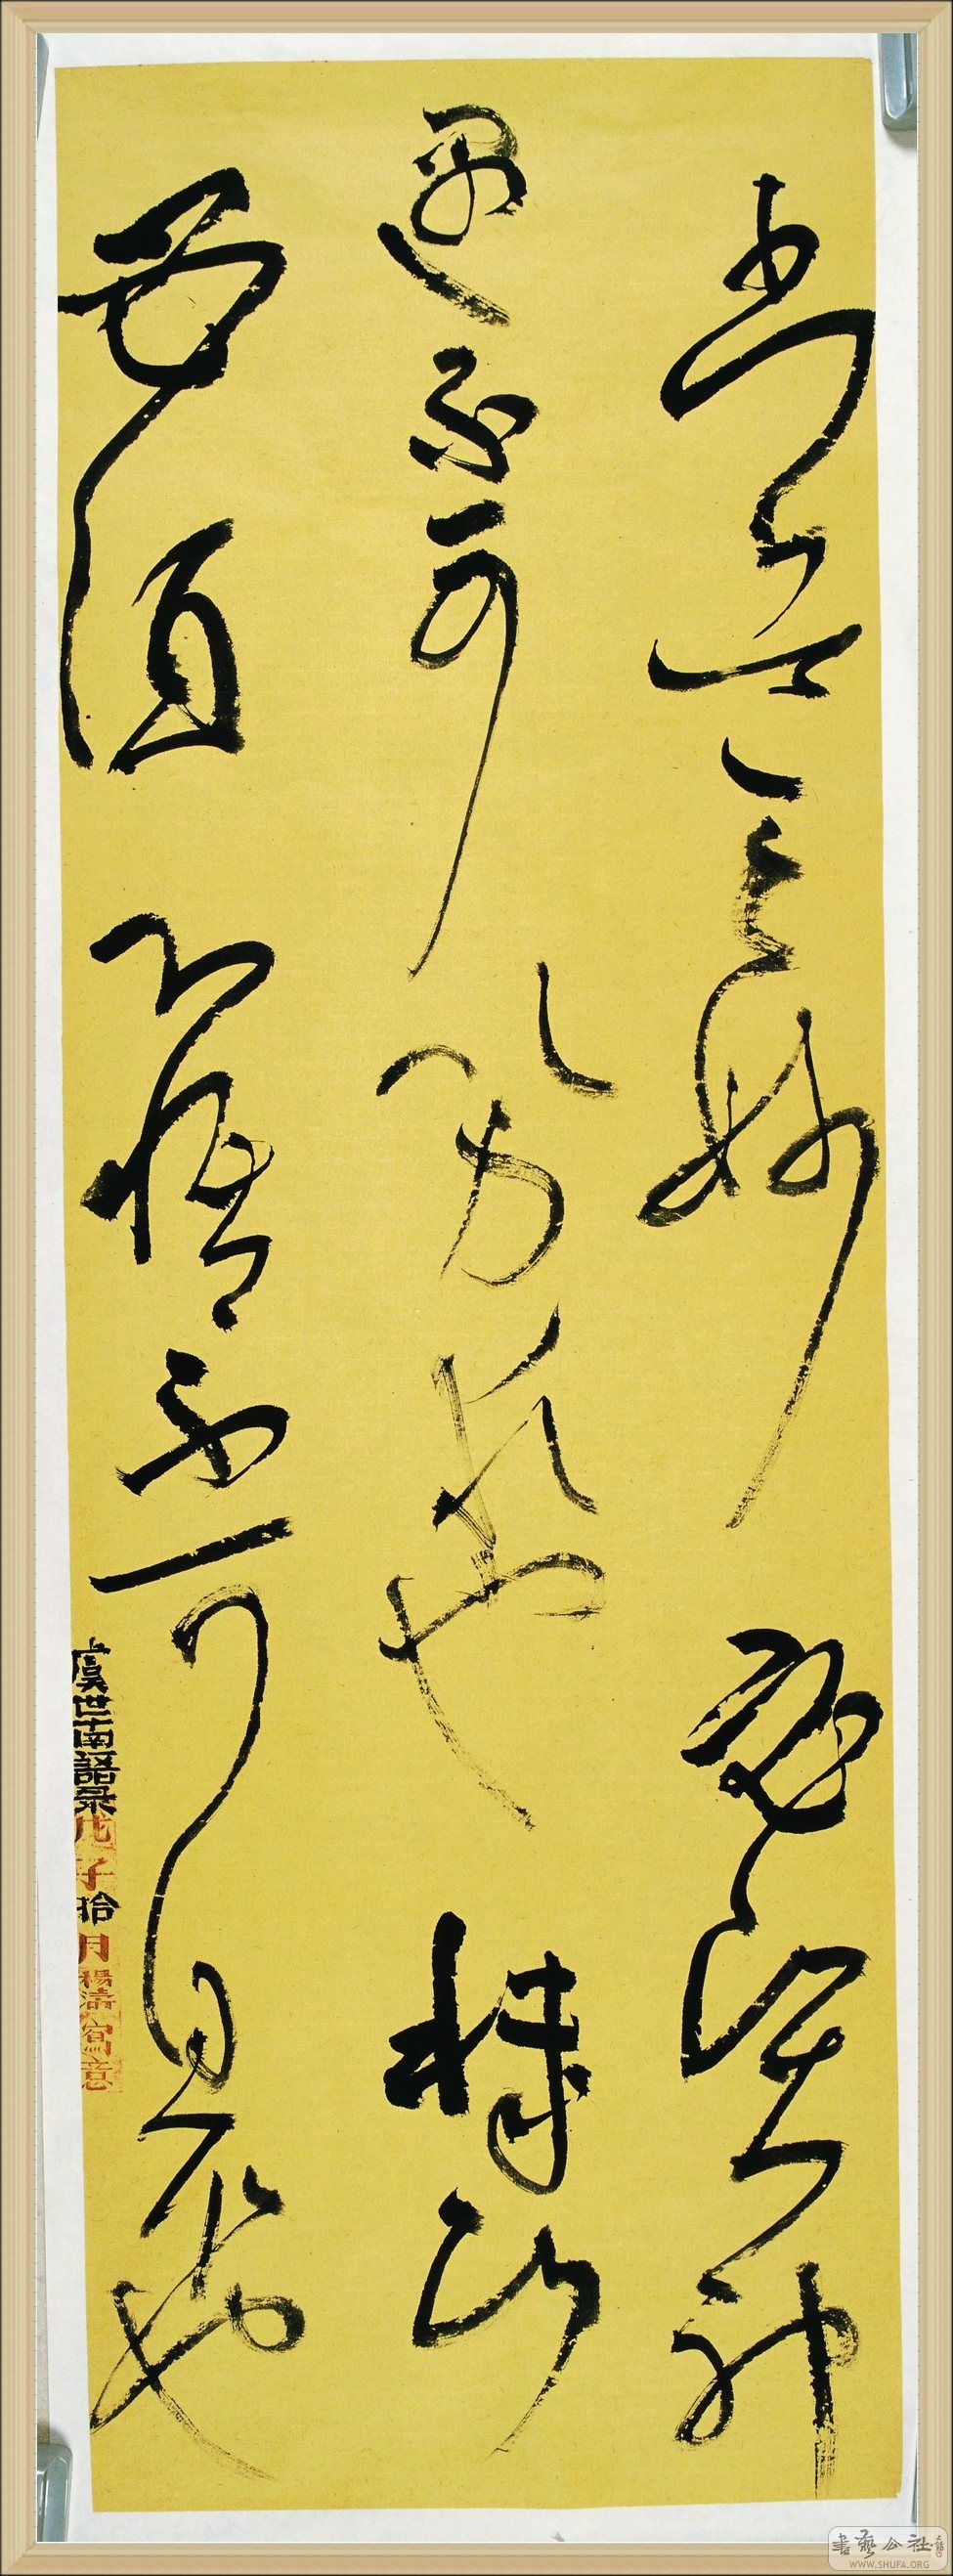 書道玄妙必資神
遇不可以力求也機巧
必須心悟不可以目取也
虞世南語录戊子拾月楊濤寫意
書藝公社
WWW.SHUFA.ORG